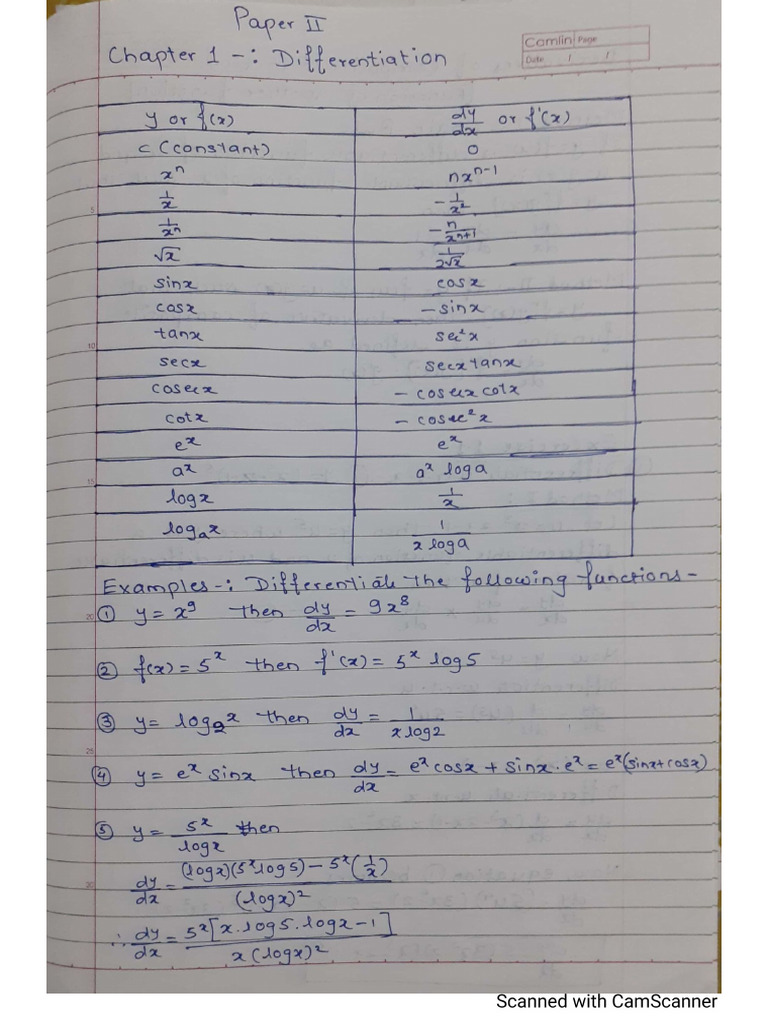 Paper II
Chapter 1 -: Differentiation
Camlin Page
Date / /
y or f(x) dy/dx or f'(x)
c (constant) 0
xⁿ nxⁿ⁻¹
1/x -1/x²
1/xⁿ -n/xⁿ⁺¹
√x 1/2√x
sinx cosx
cosx -sinx
tanx sec²x
secx secxtanx
cosecx -cosecx cotx
cotx -cosec²x
eˣ eˣ
aˣ aˣ loga
logx 1/x
logₐx 1/x loga
Examples-: Differentiate the following functions-
① y = x⁹ then dy/dx = 9x⁸
② f(x) = 5ˣ then f'(x) = 5ˣ log5
③ y = log₂x then dy/dx = 1/xlog2
④ y = eˣ sinx then dy/dx = eˣcosx + sinx·eˣ = eˣ(sinx+cosx)
⑤ y = 5ˣ/logx then
dy/dx = (logx)(5ˣlog5) - 5ˣ(1/x)/(logx)²
∴ dy/dx = 5ˣ[x·log5·logx-1]/x(logx)²
5
10
15
20
25
30
Scanned with CamScanner